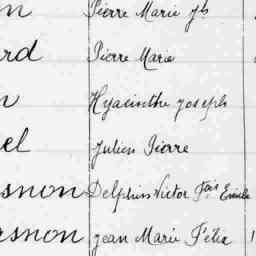 Pierre Marie Jh
rd Pierre Marie
Hyacinthe Joseph
el Julien Pierre
snon Delphin Victor Fois Emile
snon Jean Marie Félix